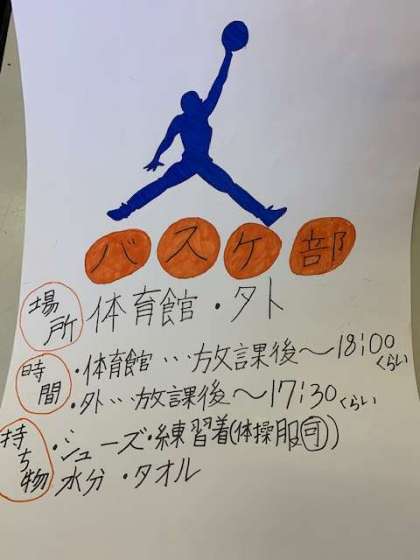 バスケ部
場所 体育館・外
時間 ・体育館…放課後～18:00くらい
・外…放課後～17:30くらい
持ち物 ・シューズ・練習着(体操服可)
水分・タオル